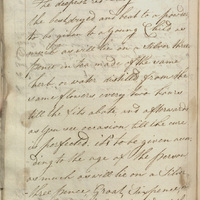 The deepest red
the best dryed and beat to a powder
to be given to a young Child as
much as will lie on a silver three
pence in Tea made of the same
herb, or water distill'd from the
same flowers every two hours
till the fits abate and afterwards
as you see occasion till the cure
is perfected, it's to be given accor
ding to the age of the person
as much as will lie on a Silver
three pence, Groat, Sixpence,